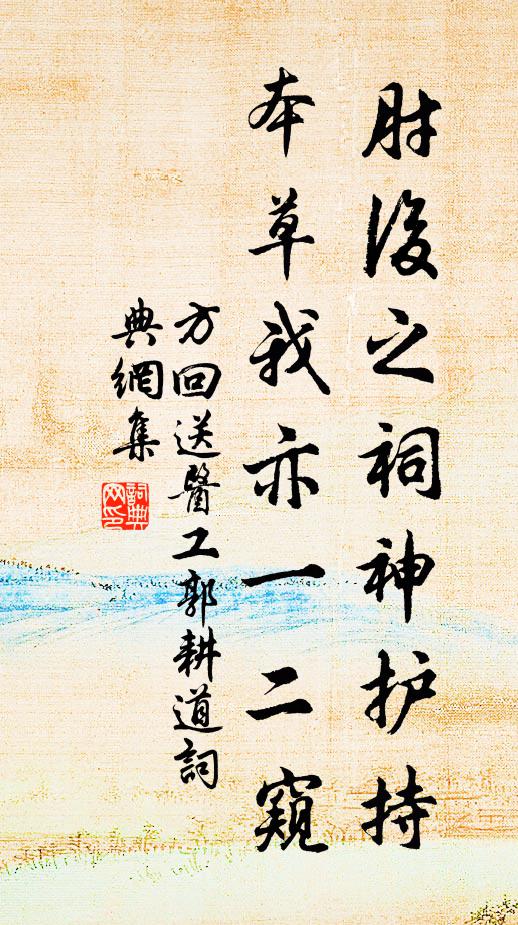 肘後之祠神护持
本草我亦一二窺
方回送醫工郭耕道詞
典網集
詞典
网印